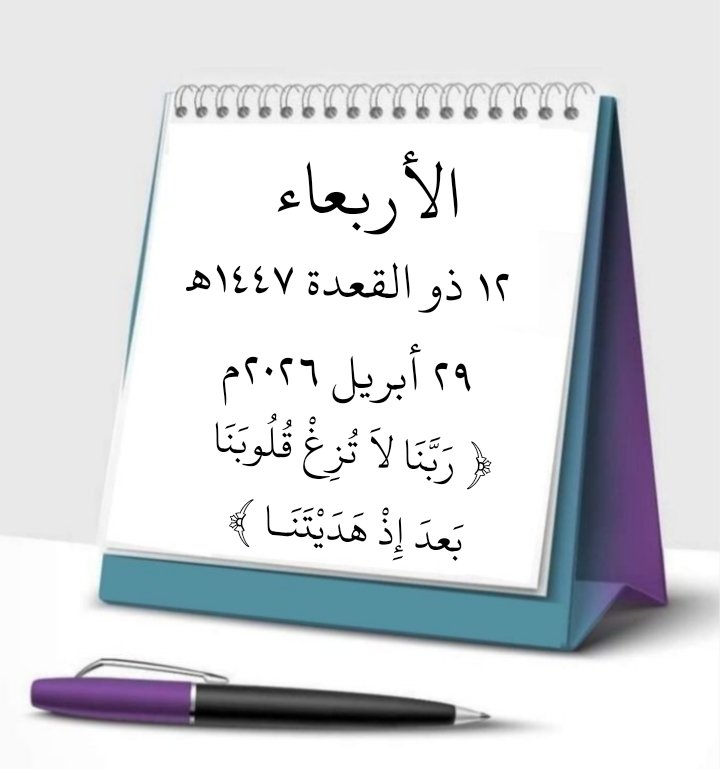 الأربعاء
١٢ ذو القعدة ١٤٤٧هـ
٢٩ أبريل ٢٠٢٦م
﴿ رَبَّنَا لاَ تُزِغْ قُلُوبَنَا
بَعدَ إِذْ هَدَيْتَنَــا ﴾